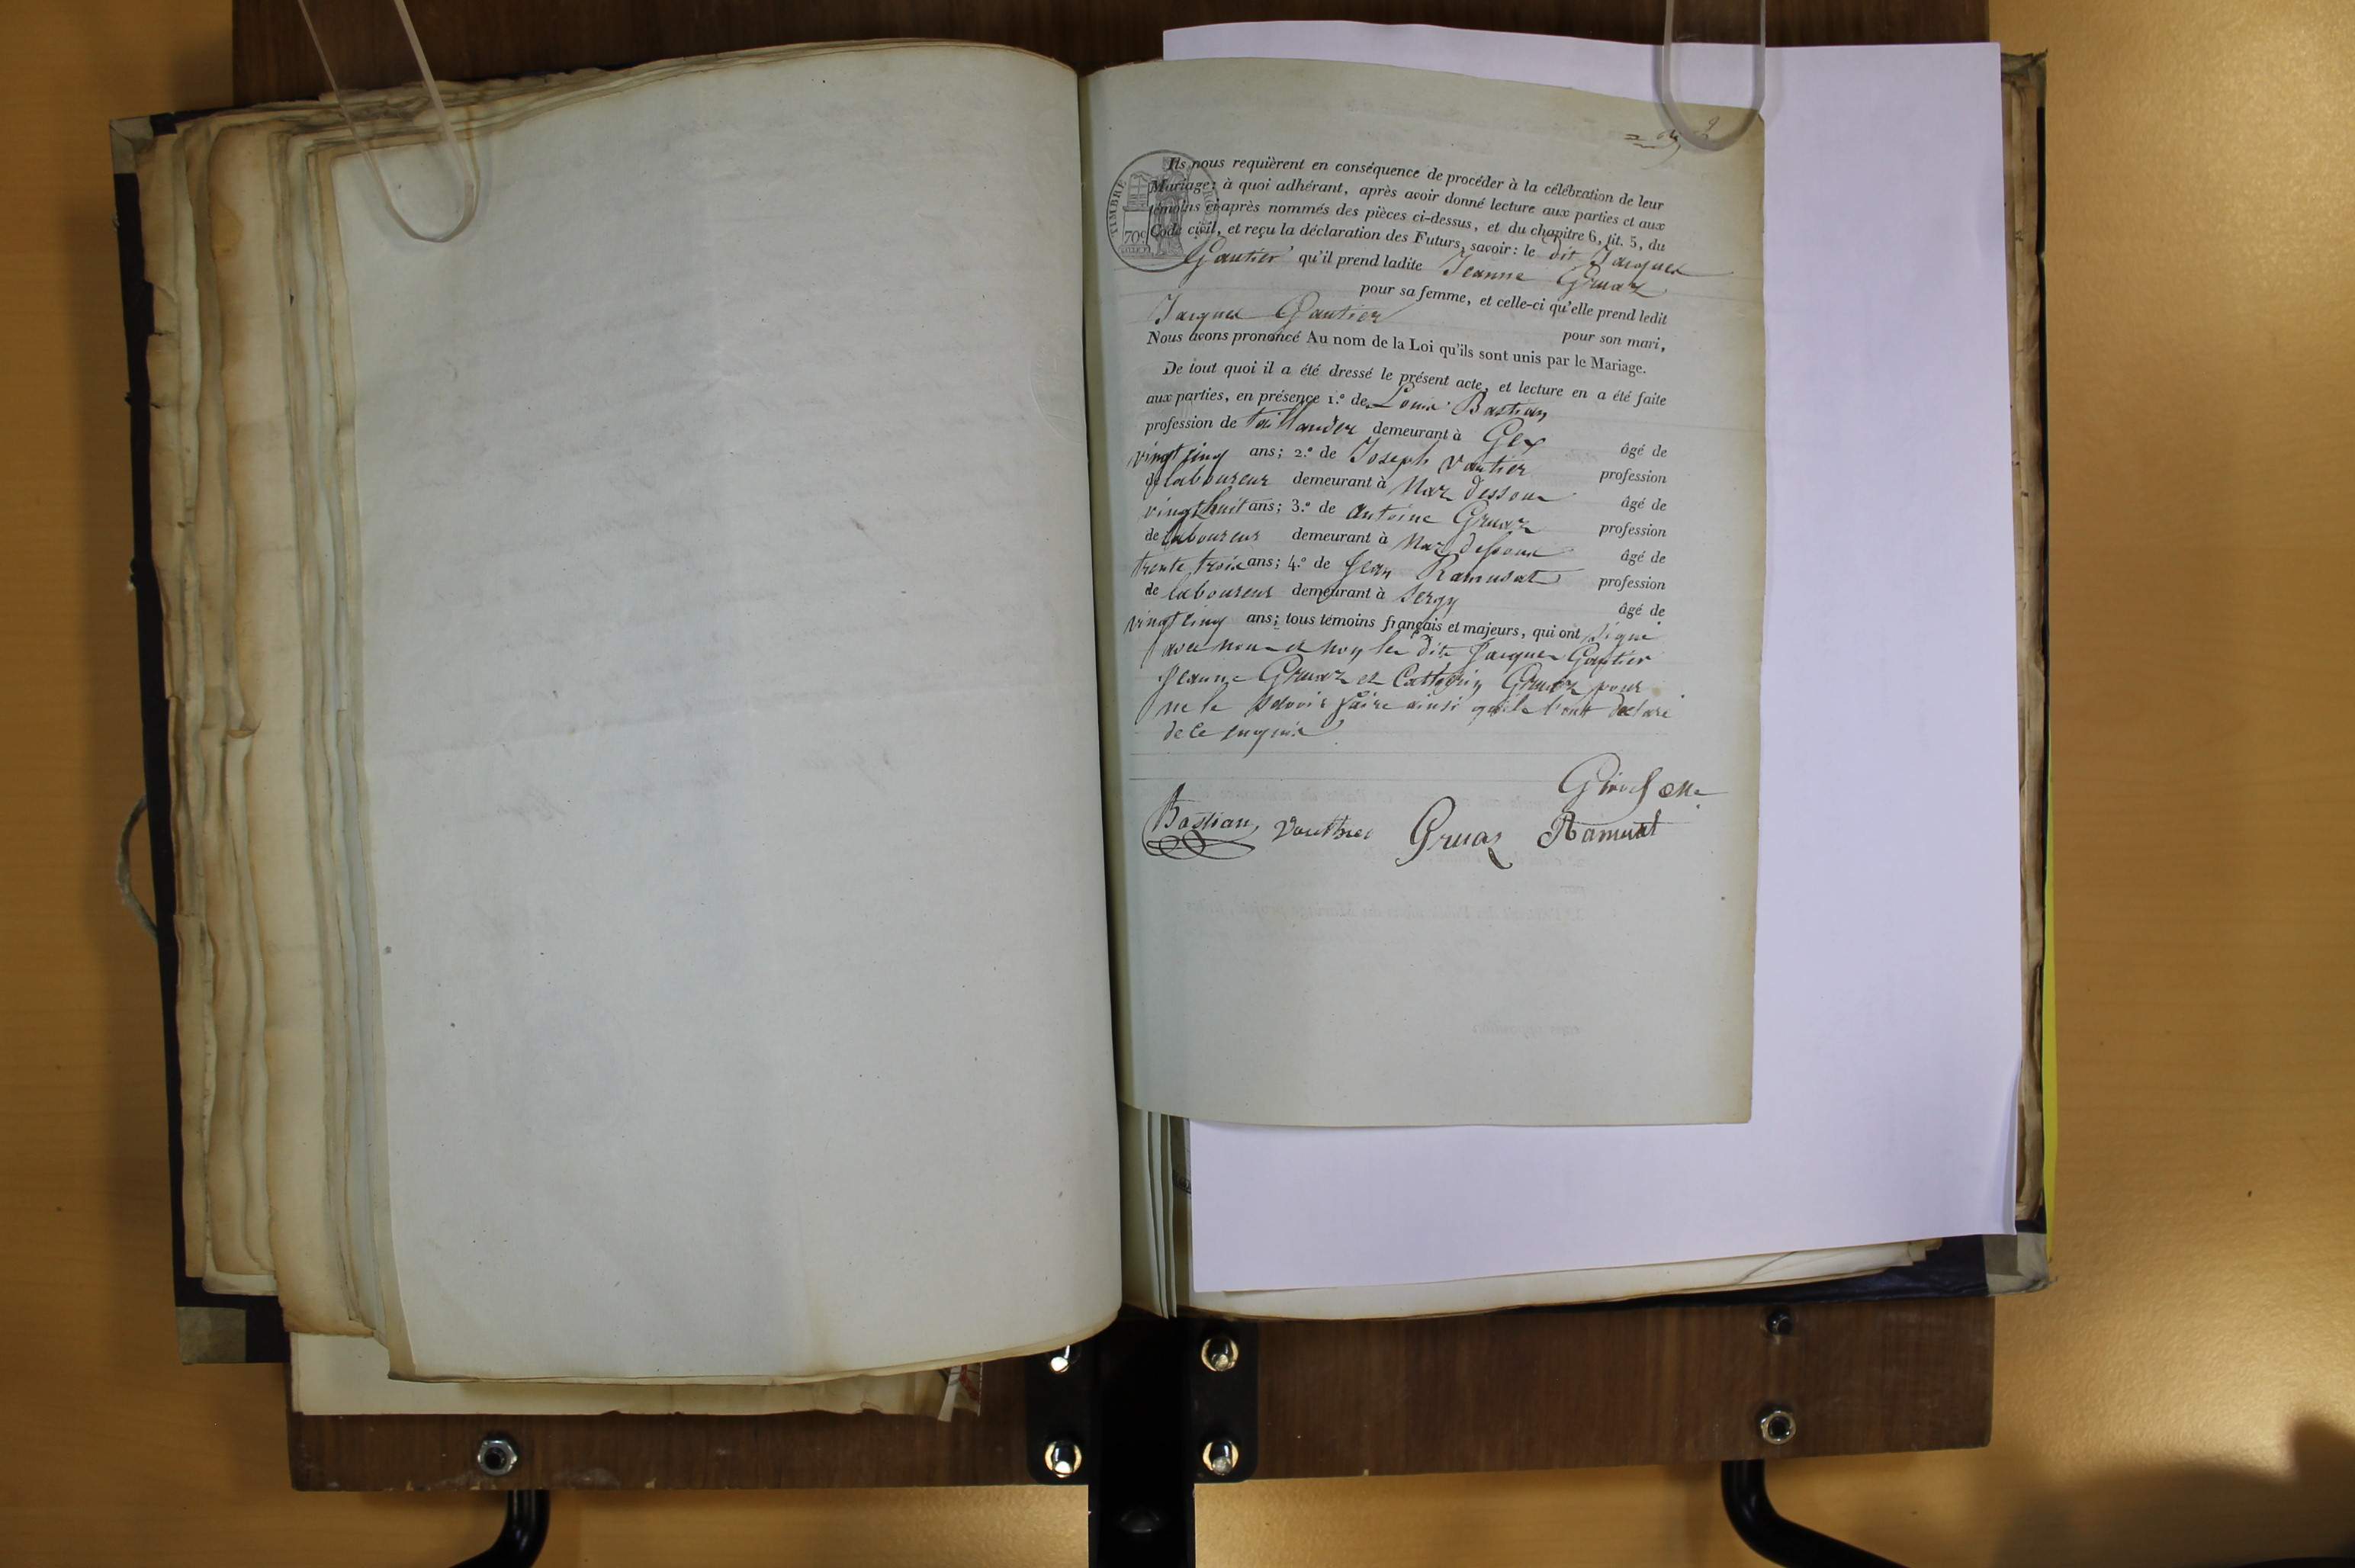 Ils nous requièrent en conséquence de procéder à la célébration de leur
Mariage: à quoi adhérant, après avoir donné lecture aux parties et aux
témoins ci-après nommés des pièces ci-dessus, et du chapitre 6, tit. 5, du
Code civil, et reçu la déclaration des Futurs, savoir: le dit Jacques
Gautier qu'il prend ladite Jeanne Gruaz
pour sa femme, et celle-ci qu'elle prend ledit
Jacques Gautier
pour son mari,
Nous avons prononcé Au nom de la Loi qu'ils sont unis par le Mariage.
De tout quoi il a été dressé le présent acte, et lecture en a été faite
aux parties, en présence 1.º de Louis Bastian
profession de taillander demeurant à Gex âgé de
vingt cinq ans; 2.º de Joseph Vautier profession
de laboureur demeurant à Naz dessous âgé de
vingt huit ans; 3.º de Antoine Gruaz profession
de laboureur demeurant à Naz dessous âgé de
trente trois ans; 4.º de Jean Ramusat profession
de laboureur demeurant à Sergy âgé de
vingt cinq ans; tous témoins français et majeurs, qui ont signé
avec nous et non les dits Jacques Gautier
Jeanne Gruaz et Catherin Gruaz pour
ne le savoir faire ainsi qu'ils l'ont declaré
de ce enquis
Bastian Vauthier Gruaz Ramusat
TIMBRE
70c